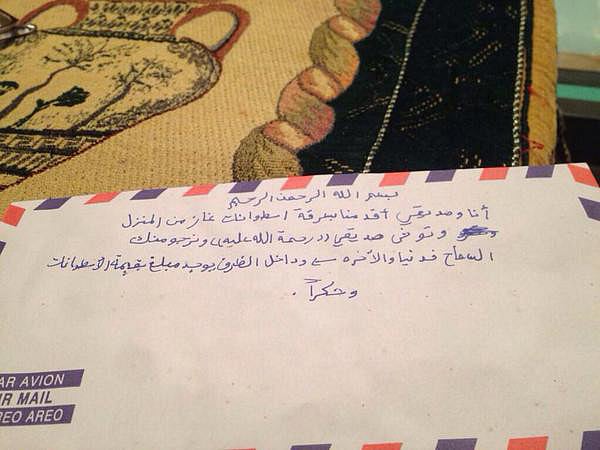 بسم الله الرحمن الرحيم
أنا وصديقي أقدمنا بسرقة اسطوانات غاز من المنزل
وتوفى صديقي (( رحمة الله عليه )) ونرجو منك
السماح في الدنيا والآخره وداخل الظرف يوجد مبلغ بقيمة الاسطوانات
وشكراً .
AR AVION
R MAIL
REO AREO